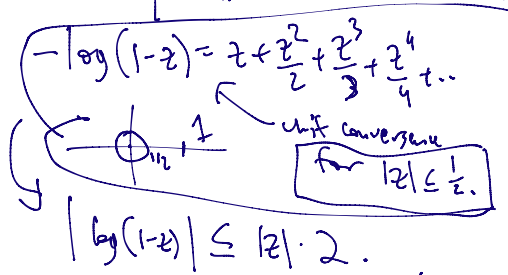 -log(1-z) = z + z²/2 + z³/3 + z⁴/4 + ..
1
1/2
unif convergence
for |z| ≤ 1/2.
|log(1-z)| ≤ |z| · 2.